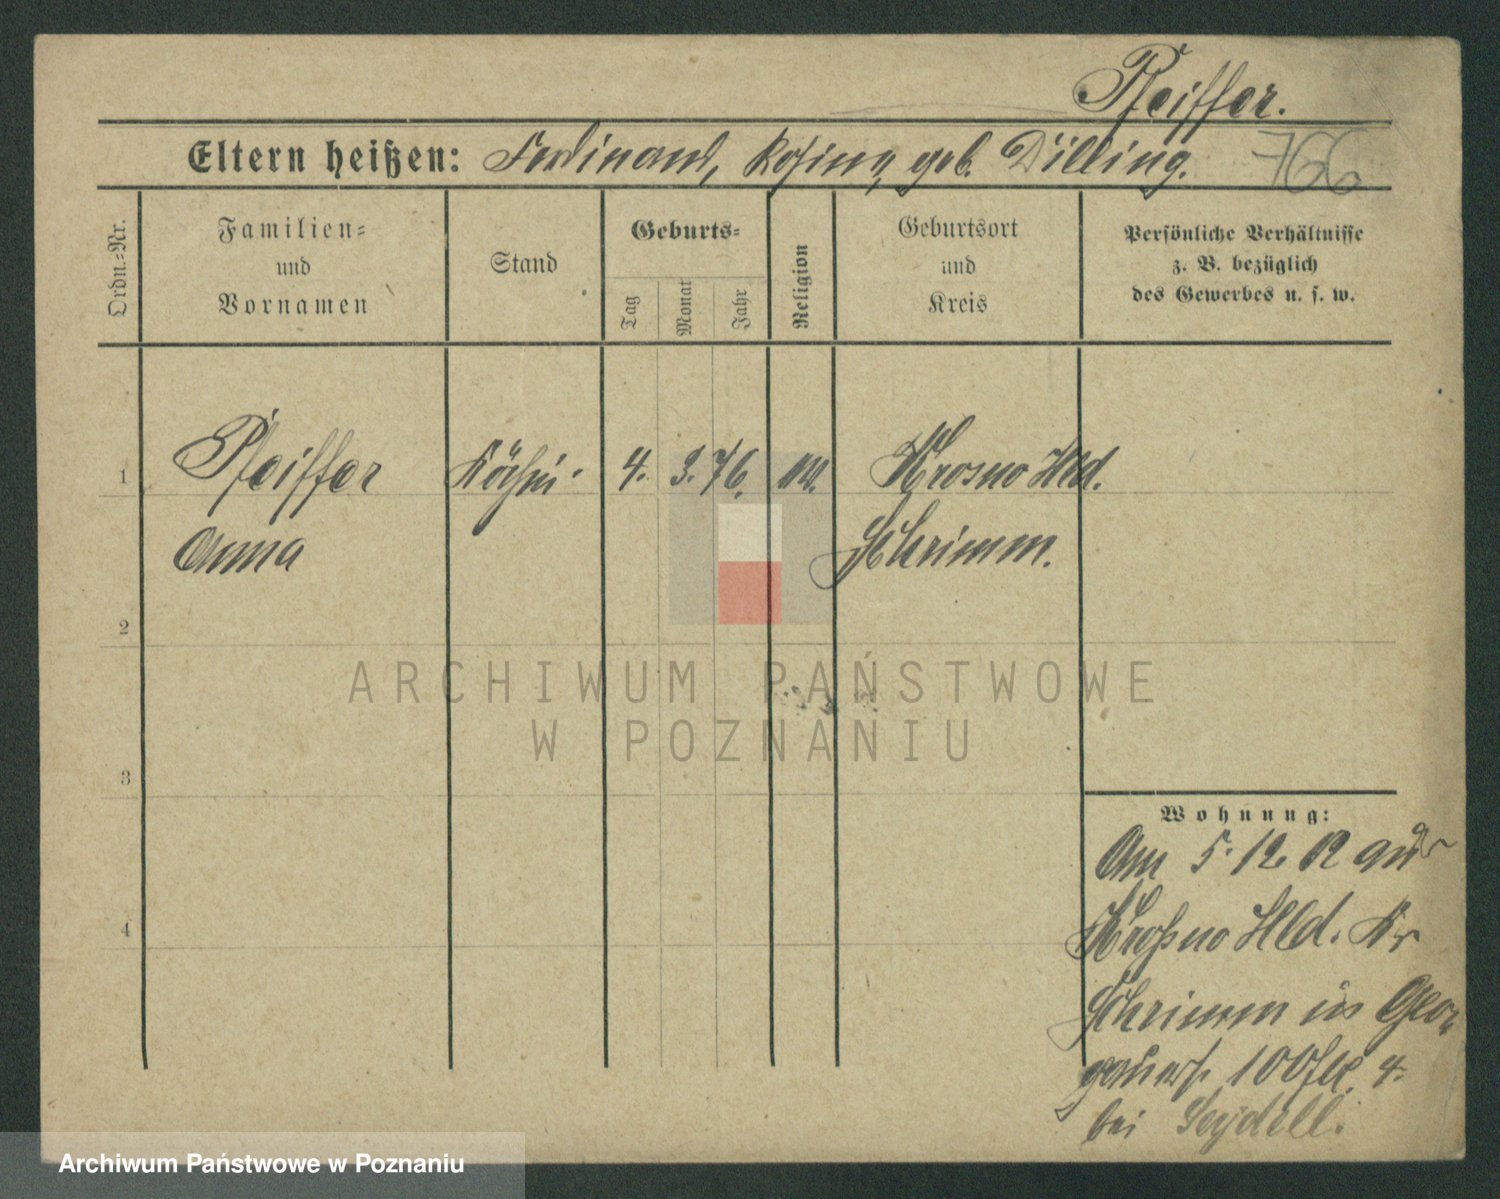 Pfeiffer.
Eltern heißen: Ferdinand, Rosina, geb. Dilling.
766
Ordn.-Nr.
Familien-
und
Vornamen
Stand
Geburts-
Tag
Monat
Jahr
Religion
Geburtsort
und
Kreis
Persönliche Verhältnisse
z. B. bezüglich
des Gewerbes u. s. w.
1 Pfeiffer Köchin 4. 3. 76. ev. Krosno Hld.
Anna Schrimm.
2
ARCHIWUM PAŃSTWOWE
W POZNANIU
3
Wohnung:
Am 5. 12. 02 aus
4 Kroßno Hld. Kr
Schrimm in
100
bei Seydell.
Archiwum Państwowe w Poznaniu